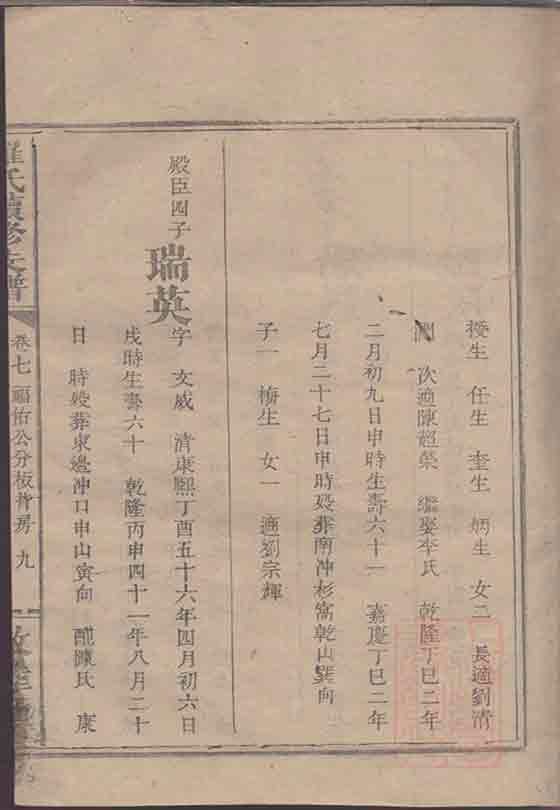 授生　任生　奎生　炳生　女二　長適劉清
次適陳超榮　繼娶李氏　乾隆丁巳二年
二月初九日申時生壽六十一　嘉慶丁巳二年
七月二十七日申時殁葬南冲杉窩乾山巽向
子一　梅生　女一　適劉宗輝
殿臣四子
瑞英
字　文威　清康熙丁酉五十六年四月初六日
戌時生壽六十　乾隆丙申四十一年八月二十
日　時殁葬東邊冲口申山寅向　配陳氏　康
羅氏續修支譜
卷七　福佑公分板背房　九
敦